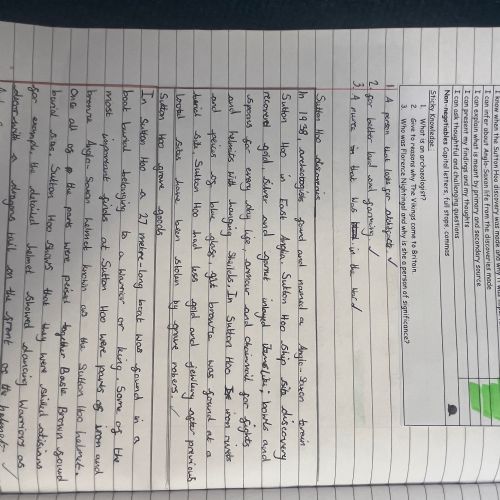 I know when the Sutton Hoo discovery was made and why it was
I can infer about Anglo-Saxon life from the discoveries made
I can explain what is meant by primary and secondary source
I can present my findings and my thoughts
I can ask thoughtful and challenging questions
Non-negotiables Capital letters, full stops, commas
Sticky Knowledge
1. What is an archaeologist?
2. Give to reasons why The Vikings came to Britain.
3. Who was Florence Nightingal and why is she a person of significance?
1. A person that look for
2. for better land and farming
3. A nurse in that was in the war
Sutton Hoo discoveries
In 1938, archeologists found and named a Anglo-Saxon
Sutton Hoo in East Anglia. Sutton Hoo ship site discovery
recovered gold, silver and garnet inlayed items like; bowls and
spoons for every day life, armour and chainmail for fights
and helmets with hanging shields. In Sutton Hoo iron rivets
and pieces of blue glass, gilt bronze was found at a
burial site. Sutton Hoo had less gold and jewlery after previous
burial sites have been stolen by grave robers.
Sutton Hoo grave goods
In Sutton Hoo a 27 metre-long boat was found in a
boat burial belonging to a warrior or king. Some of the
most important finds at Sutton Hoo were parts of iron and
bronze Anglo-Saxon helmet known as the Sutton Hoo helmet.
Once all of the parts were peised together Basil Brown found
burial site Sutton Hoo shows that they were skilled
for example the detailed helmet showed dancing warriors as
a dragons tail on the front of the helmet.